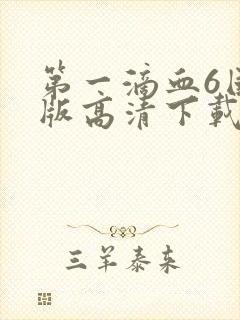 第一滴血6国
版高清下載
三羊泰来